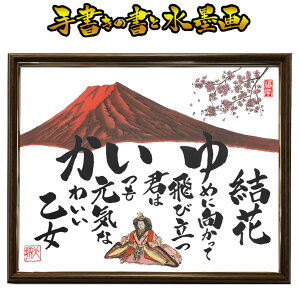 手書きの書と水墨画
結花
ゆめに向かって
飛び立つ
君は
いつも
元気な
かわいい
乙女